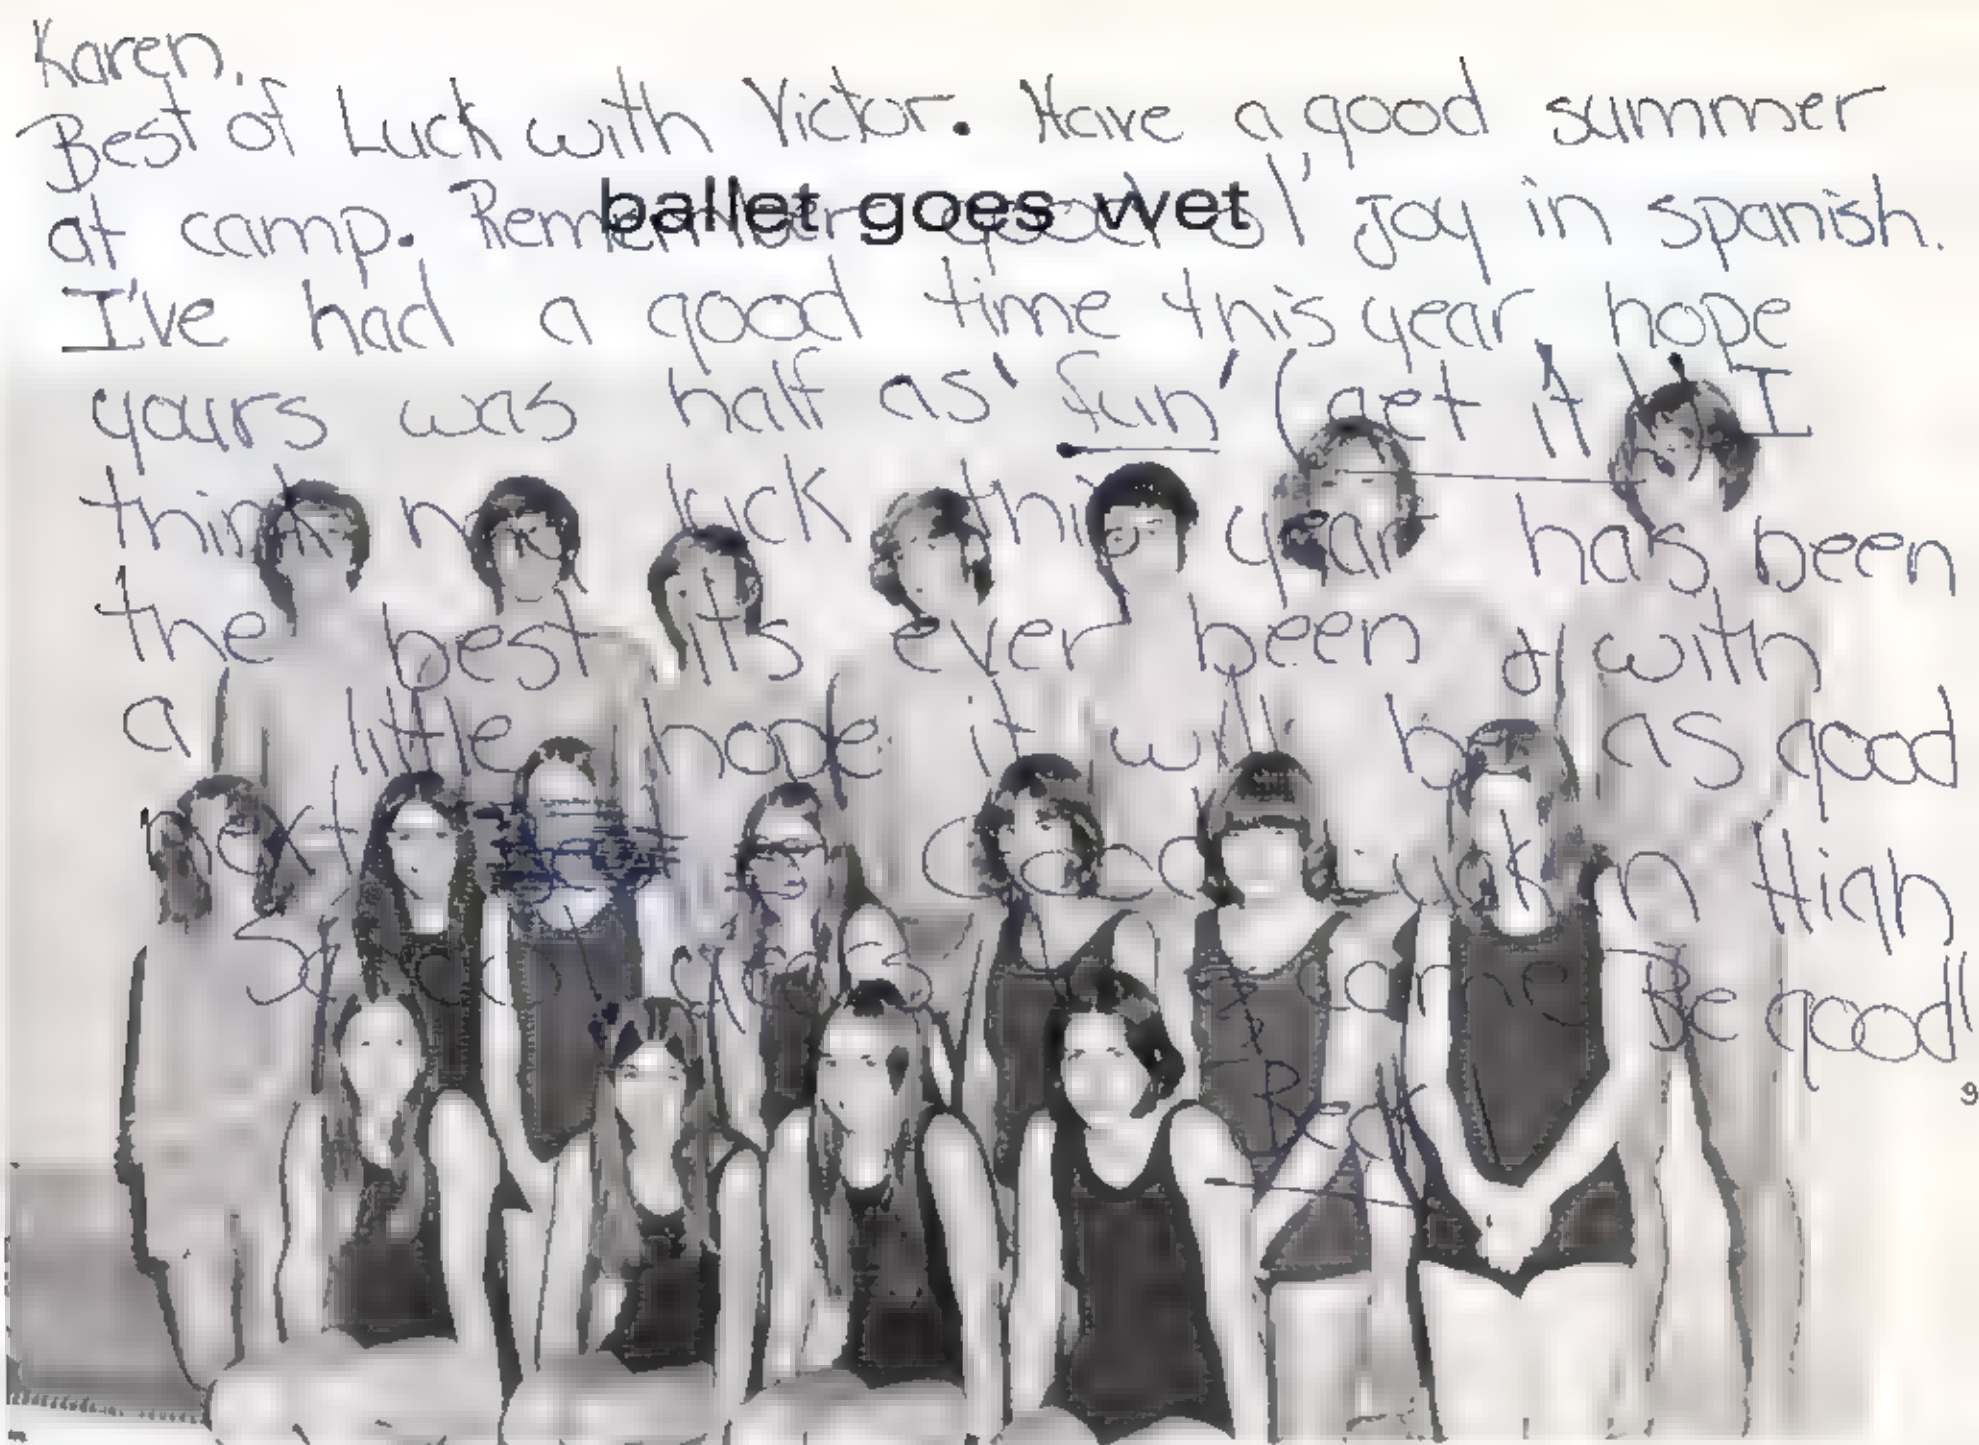 Karen,
Best of Luck with Victor. Have a good summer
ballet goes wet
at camp. Remember good ol' Joy in spanish.
I've had a good time this year, hope
yours was half as 'fun' (get it?) I
think my luck this year has been
the best its ever been & with
a little hope it will be as good
next Good Luck in High
School Be good!
9
Beck